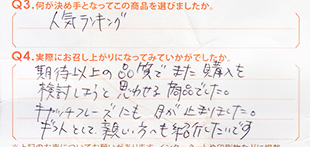 Q3.何が決め手となってこの商品を選びましたか。
人気ランキング
Q4.実際にお召し上がりになってみていかがでしたか。
期待以上の品質でまた購入を
検討しようと思わせる商品でした。
キャッチフレーズにも目が止まりました。
ギフトとして親しい方へも紹介したいです